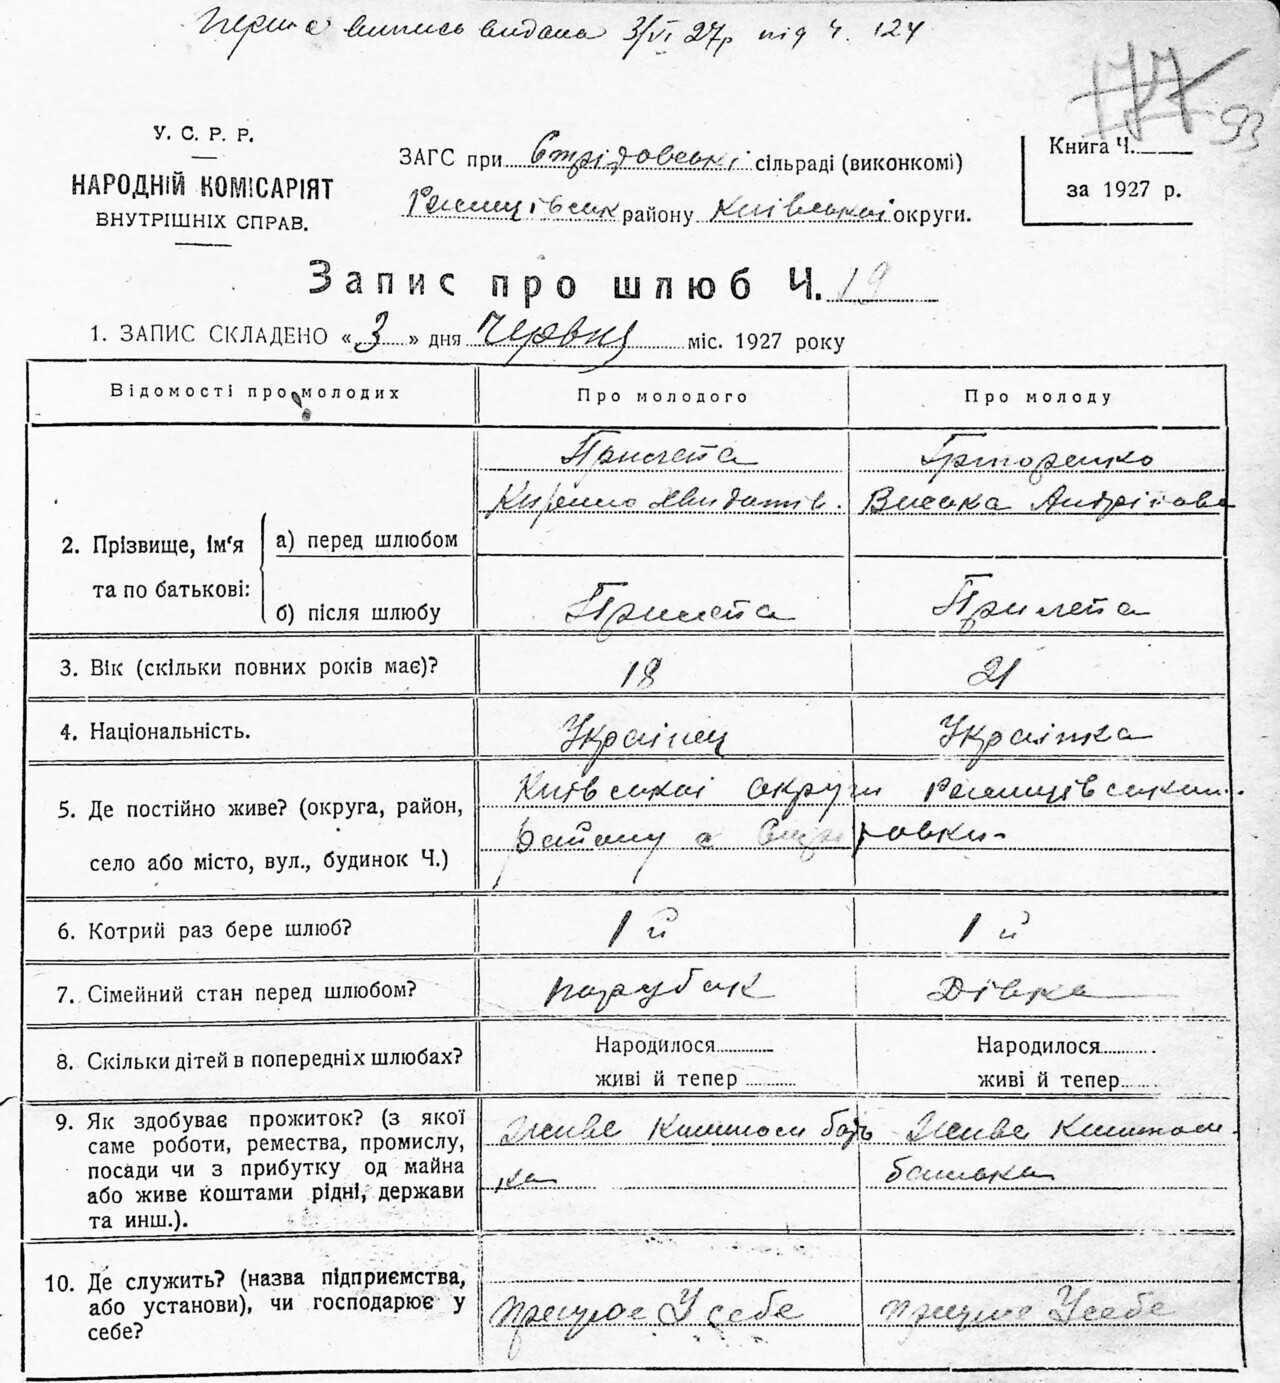 Перша випись видана 3/VI 27р під ч. 124
177
93
У. С. Р. Р.
НАРОДНІЙ КОМІСАРІЯТ
ВНУТРІШНІХ СПРАВ.
ЗАГС при сільраді (виконкомі)
району Київської округи.
Книга Ч.
за 1927 р.
Запис про шлюб Ч. 19
1. ЗАПИС СКЛАДЕНО « 3 » дня Червня міс. 1927 року
Відомості про молодих Про молодого Про молоду
2. Прізвище, ім‘я та по батькові:
а) перед шлюбом
Прилета
Кирило
Андріївова
б) після шлюбу Прилета Прилета
3. Вік (скільки повних років має)? 18 21
4. Національність. Українец Українка
5. Де постійно живе? (округа, район,
село або місто, вул., будинок Ч.)
Київської округи
району с
6. Котрий раз бере шлюб? 1й 1й
7. Сімейний стан перед шлюбом? парубак Дівка
8. Скільки дітей в попередніх шлюбах?
Народилося Народилося
живі й тепер живі й тепер
9. Як здобуває прожиток? (з якої
саме роботи, ремества, промислу,
посади чи з прибутку од майна
або живе коштами рідні, держави
та инш.).
Живе Коштом бать
ка
Живе Коштом
батька
10. Де служить? (назва підприємства,
або установи), чи господарює у
себе?
працює У себе працює У себе